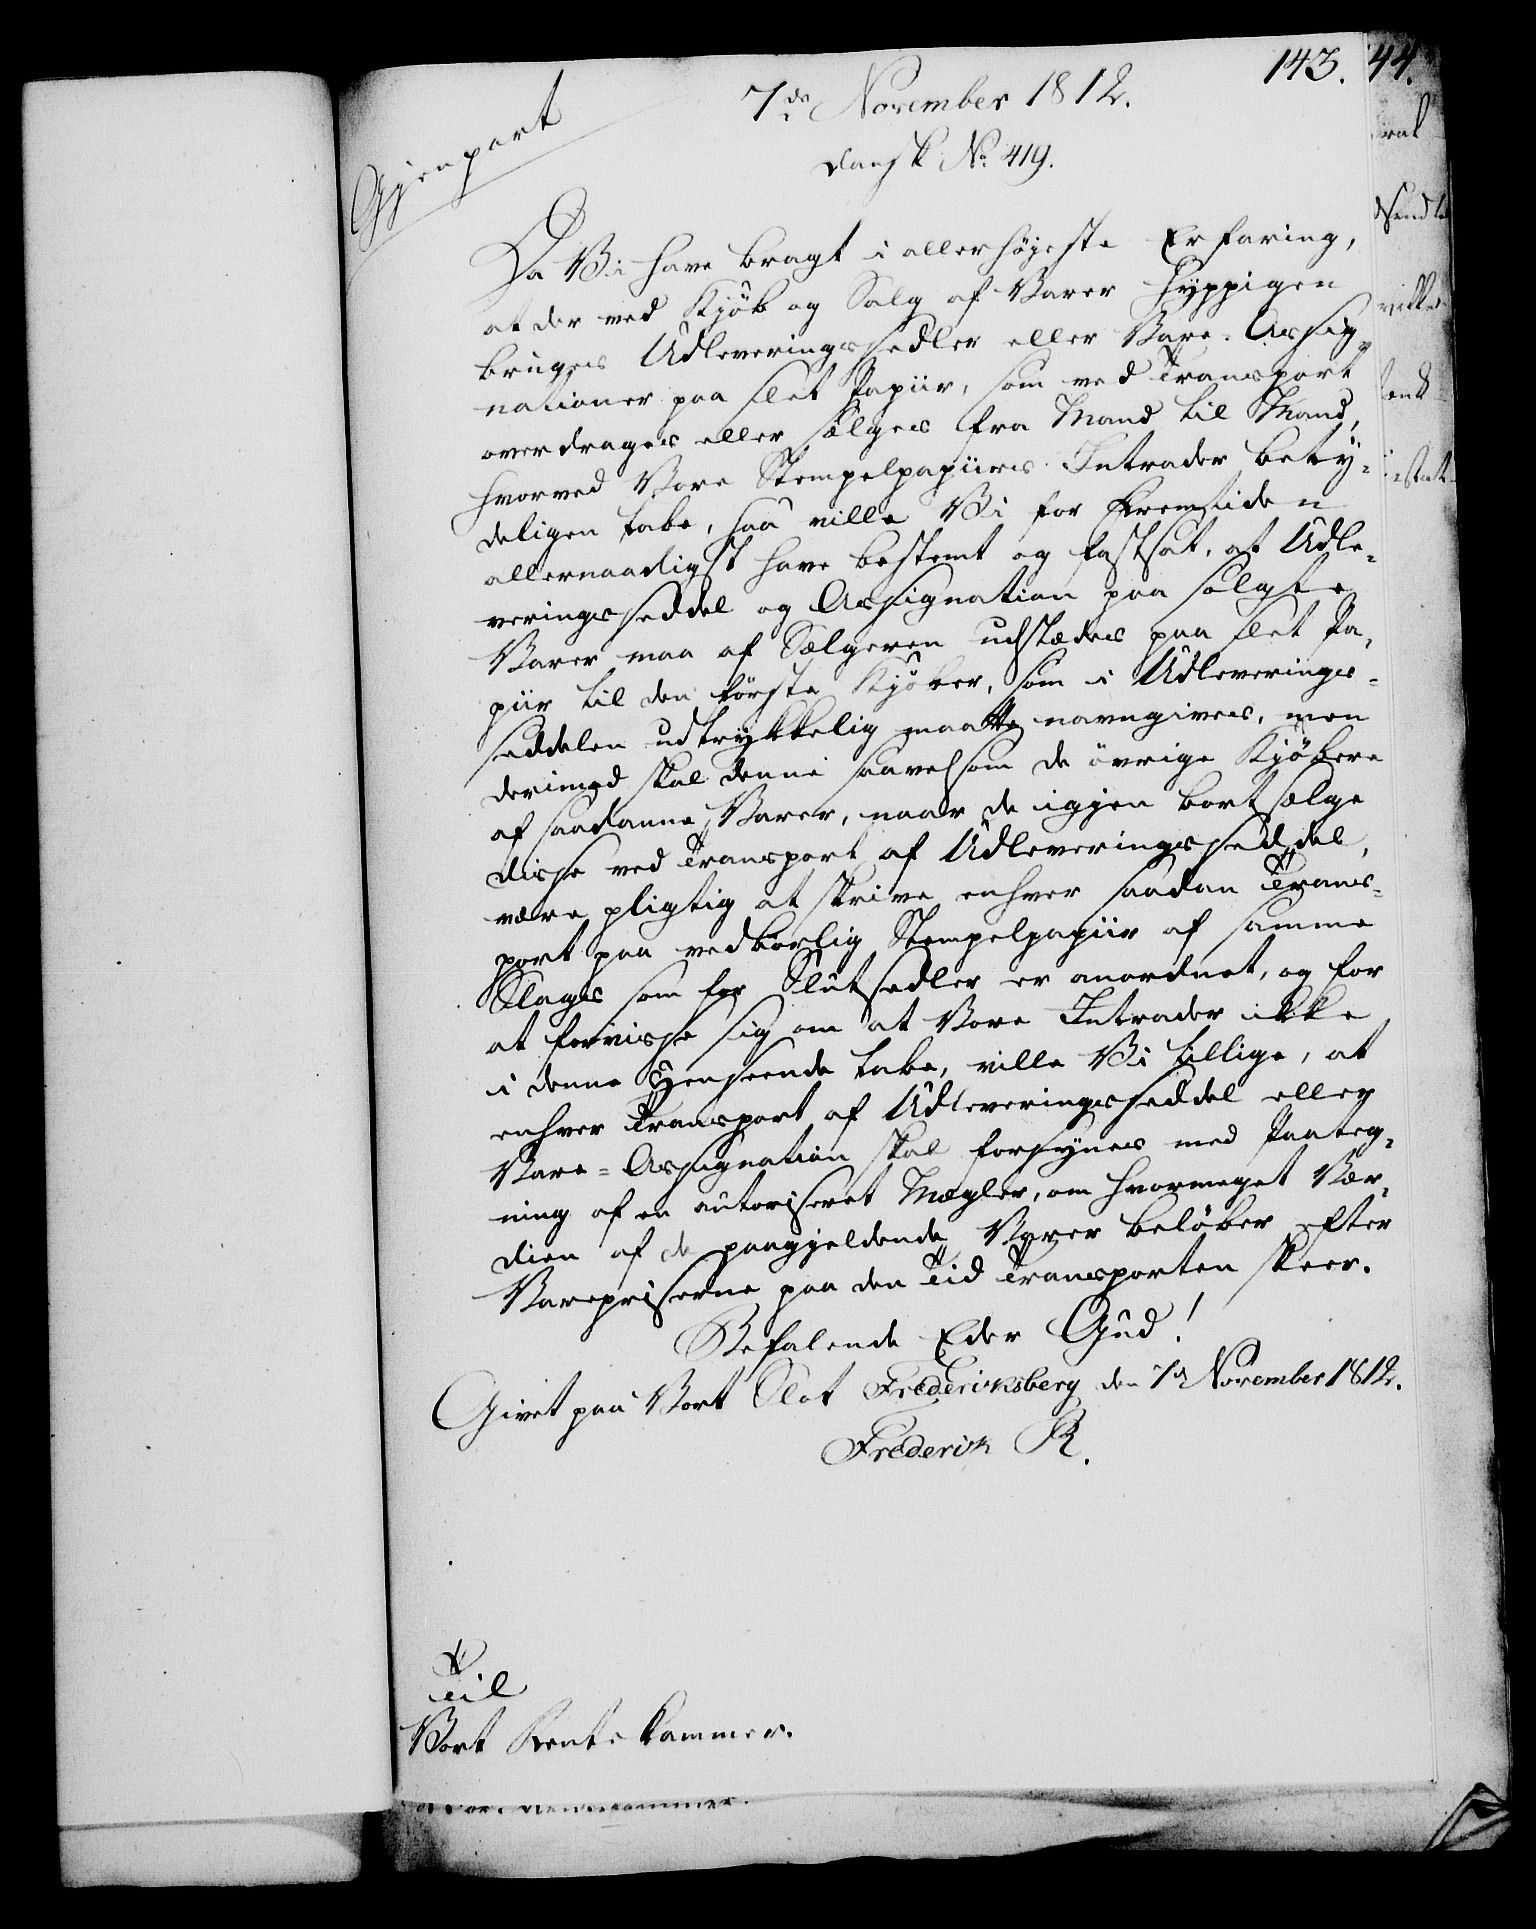 143.
44.
7de November 1812.
Gjenpart
dansk No 419.
Da Vi have bragt i allerhøjeste Erfaring,
at der ved Kjøb og Salg af Varer hyppigen
bruges Udleveringssedler eller Vare-Assig-
nationer paa slet Papiir, som ved Transport
overdrages eller sælges fra Mand til Mand,
hvorved Vore Stempelpapiirs Intrader bety-
deligen tabe, saa ville Vi for Fremtiden
allernaadigst have bestemt og fastsat, at Udle-
veringsseddel og Assignation paa solgte
Varer maa af Sælgeren udstædes paa slet Pa-
piir til den første Kjøber, som i Udleverings-
seddelen udtrykkelig maatte navngives, men
derimod skal denne saavelsom de øvrige Kjøbere
af saadanne Varer, naar de igjen bortsælge
disse ved Transport af Udleveringsseddel,
være pligtig at skrive enhver saadan Trans-
port paa vedbørlig Stempelpapiir af samme
Slags som for Slutsedler er anordnet, og for
at forvisse sig om at Vore Intrader ikke
i denne Henseende tabe, ville Vi tillige, at
enhver Transport af Udleveringsseddel eller
Vare-Assignation skal forsynes med Paateg-
ning af en autoriseret Mægler, om hvormeget Vær-
dien af de paagjeldende Varer beløber efter
Varepriserne paa den Tid Transporten skeer.
Befalende Eder Gud!
Givet paa Vort Slot Frederiksberg den 7de November 1812.
Frederik R.
Til
Vort Rentekammer.